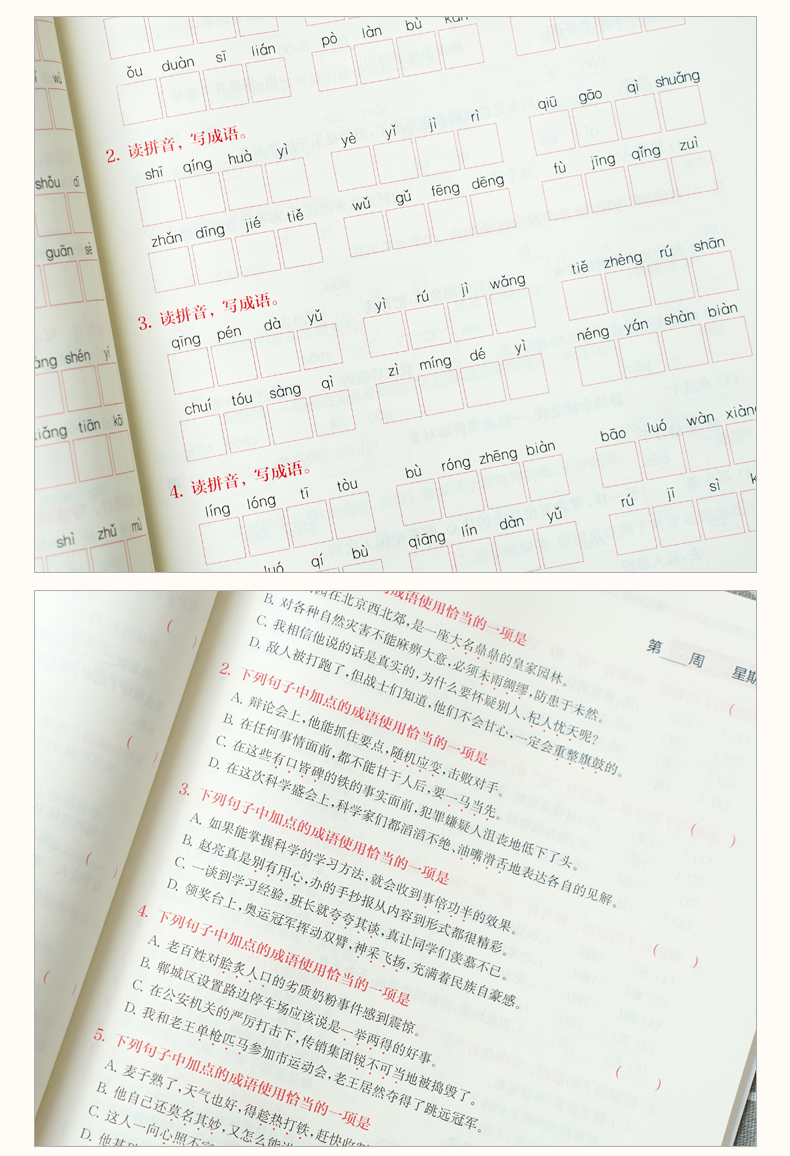 ǒu duàn sī lián
pò làn bù kān
wù
2. 读拼音，写成语。
shī qíng huà yì
yè yǐ jì rì
qiū gāo qì shuǎng
shǒu
zhǎn dīng jié tiě
wǔ gǔ fēng dēng
fù jīng qǐng zuì
guān sè
3. 读拼音，写成语。
qīng pén dà yǔ
yì rú jì wǎng
tiě zhèng rú shān
shén yì
chuí tóu sàng qì
zì míng dé yì
néng yán shàn biàn
xiǎng tiān kāi
4. 读拼音，写成语。
líng lóng tī tòu
bù róng zhēng biàn
bāo luó wàn xiàng
shì zhǔ mù
luó qí bù
qiāng lín dàn yǔ
rú jī sì
第 周 星期
成语使用恰当的一项是
在北京西北郊，是一座大名鼎鼎的皇家园林。
B. 对各种自然灾害不能麻痹大意，必须未雨绸缪，防患于未然。
C. 我相信他说的话是真实的，为什么要怀疑别人、杞人忧天呢？
D. 敌人被打跑了，但战士们知道，他们不会甘心，一定会重整旗鼓的。
2. 下列句子中加点的成语使用恰当的一项是 ( )
A. 辩论会上，他能抓住要点，随机应变，击败对手。
B. 在任何事情面前，都不能甘于人后，要一马当先。
C. 在这些有口皆碑的铁的事实面前，犯罪嫌疑人沮丧地低下了头。
D. 在这次科学盛会上，科学家们都滔滔不绝、油嘴滑舌地表达各自的见解。
3. 下列句子中加点的成语使用恰当的一项是 ( )
A. 如果能掌握科学的学习方法，就会收到事倍功半的效果。
B. 赵亮真是别有用心，办的手抄报从内容到形式都很精彩。
C. 一谈到学习经验，班长就夸夸其谈，真让同学们羡慕不已。
D. 领奖台上，奥运冠军挥动双臂，神采飞扬，充满着民族自豪感。
4. 下列句子中加点的成语使用恰当的一项是 ( )
A. 老百姓对脍炙人口的劣质奶粉事件感到震惊。
B. 郸城区设置路边停车场应该说是一举两得的好事。
C. 在公安机关的严厉打击下，传销集团锐不可当地被捣毁了。
D. 我和老王单枪匹马参加市运动会，老王居然夺得了跳远冠军。
5. 下列句子中加点的成语使用恰当的一项是 ( )
A. 麦子熟了，天气也好，得趁热打铁，赶快收割
B. 他自己还莫名其妙，又怎么能
C. 这人一向心照不宣
D. 他基础